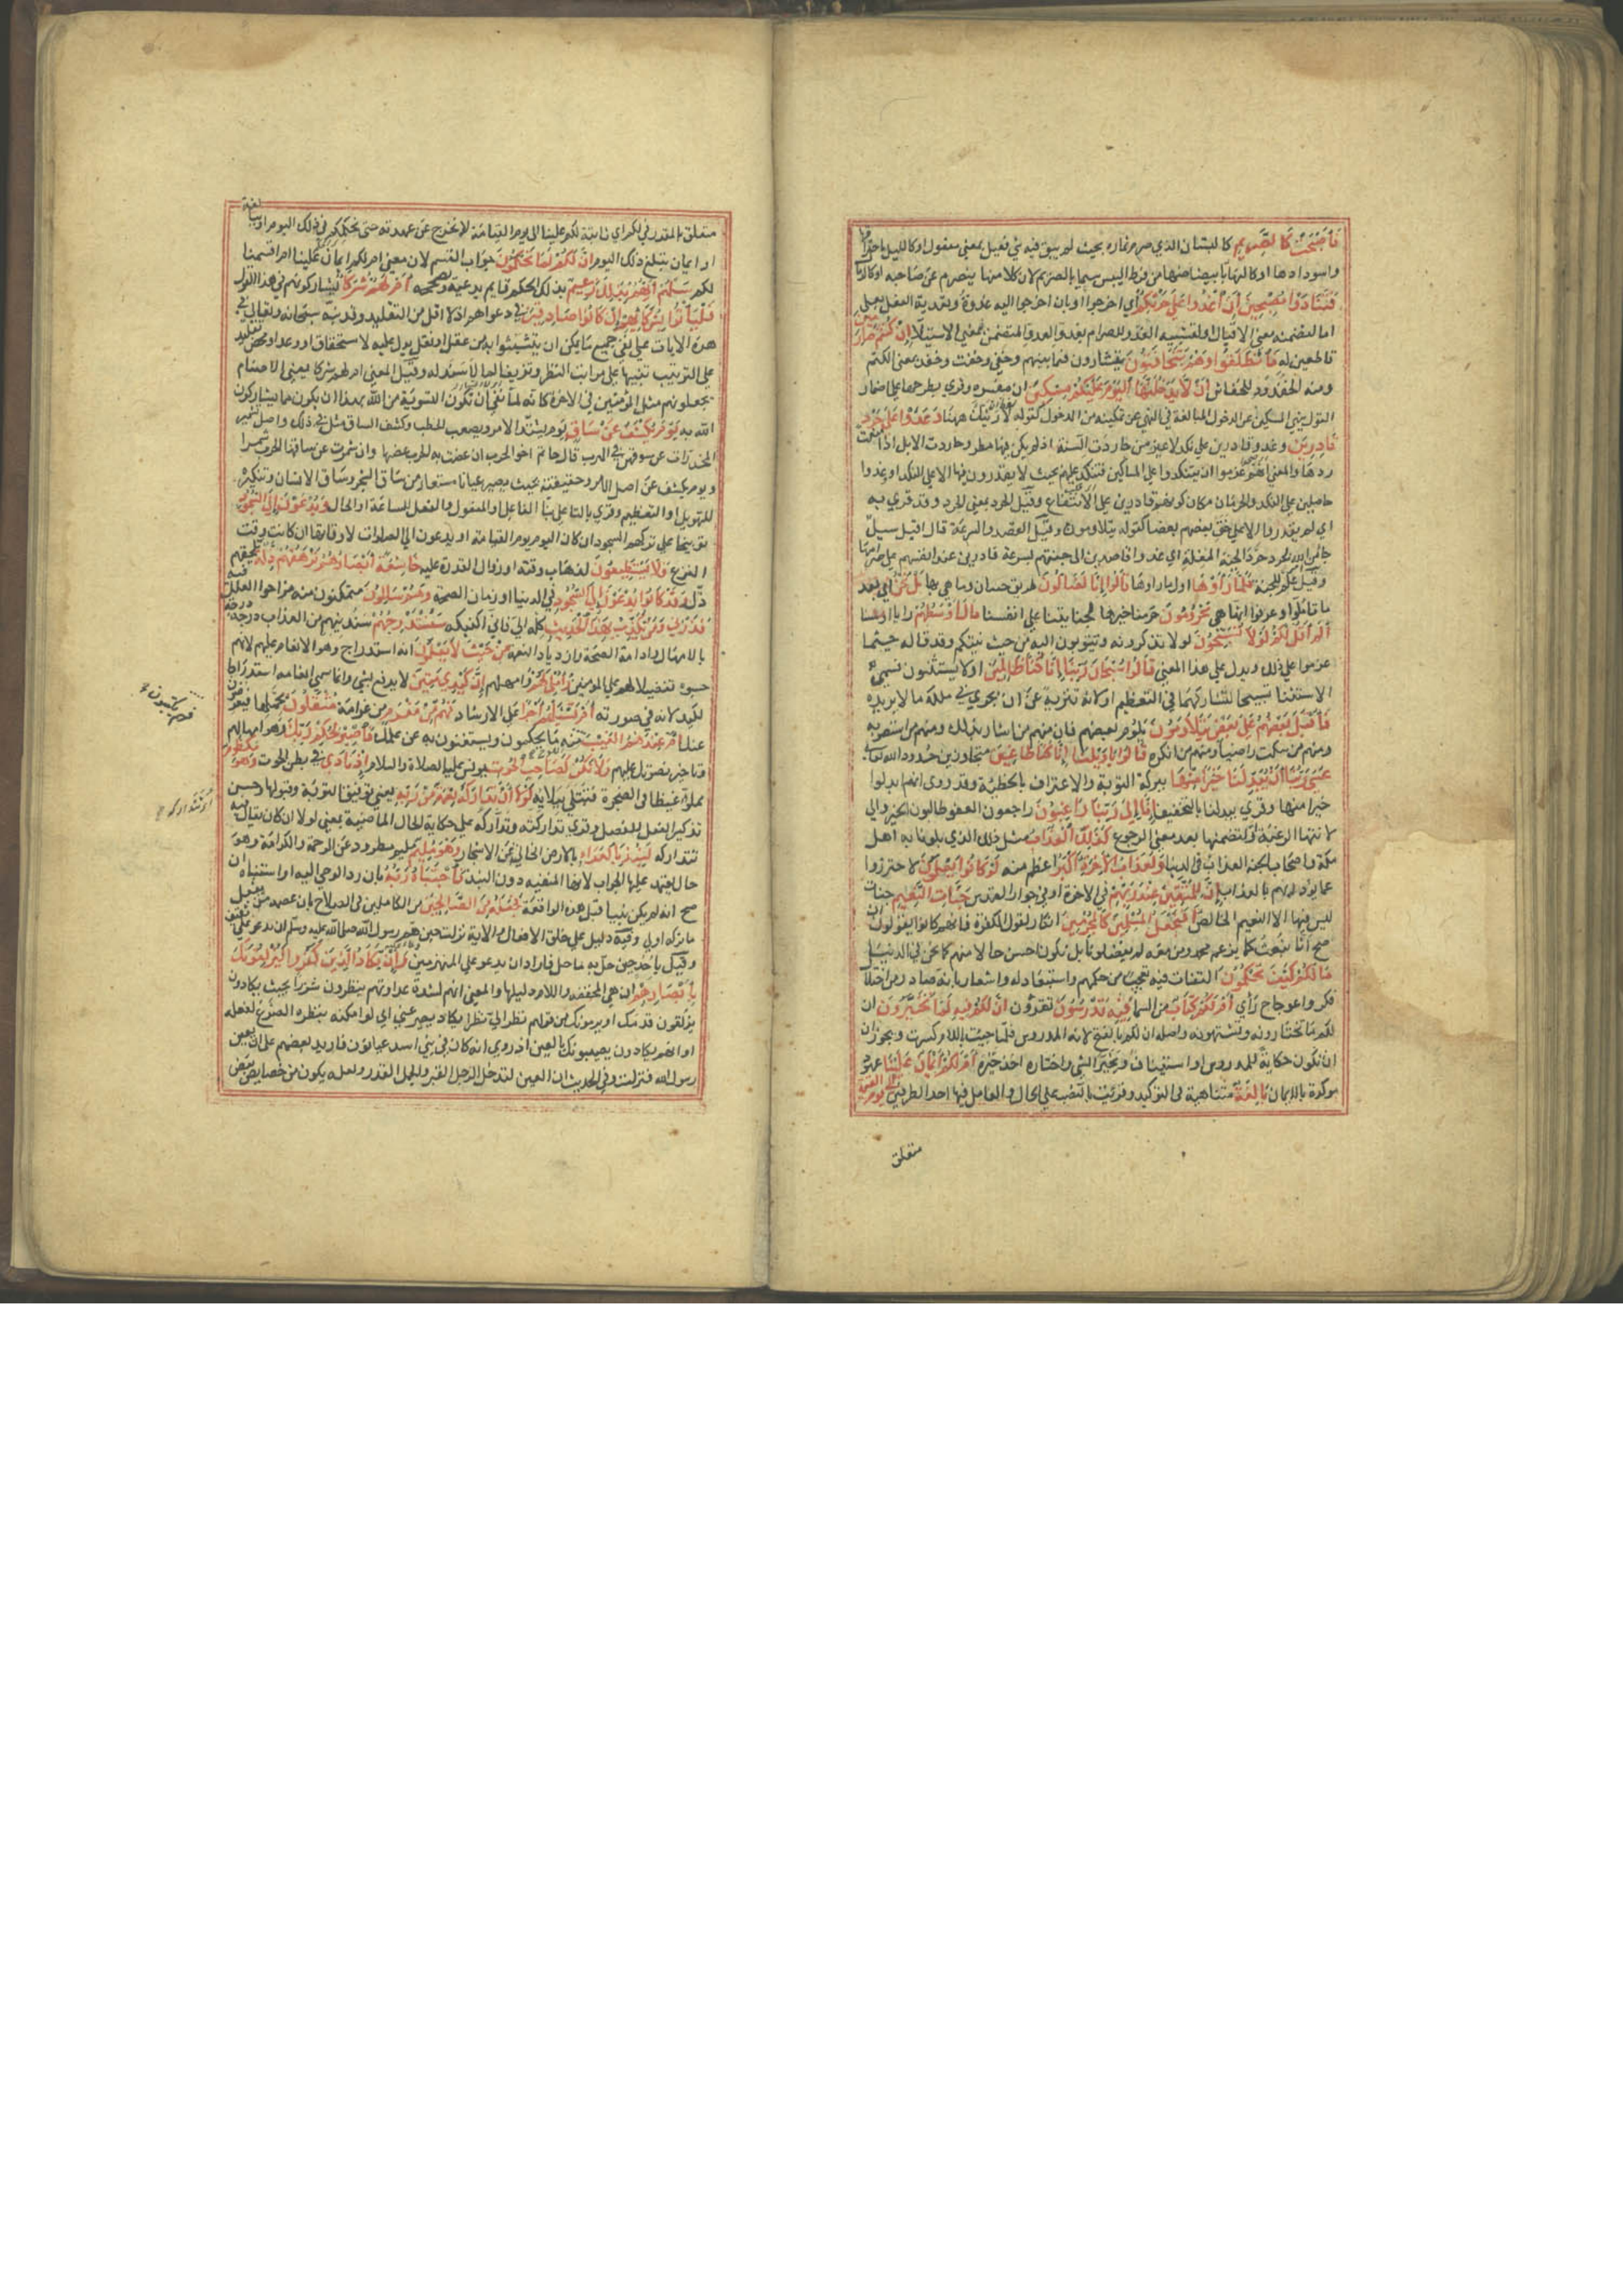 فَأَصْبَحَتْ كَالصَّرِيمِ كالبستان الذي صرم ثماره بحيث لم يبق فيه شئ فعيل بمعني مفعول او كالليل باحتراقها
واسودادها او كالنهار بابيضاضها من فرط اليبس سميا بالصريم لان كلا منهما ينصرم عن صاحبه او كالرمال
فَتَنَادَوْا مُصْبِحِينَ أَنِ اغْدُوا عَلَى حَرْثِكُمْ اي اخرجوا او بان اخرجوا اليه غدوة وتعدية الفعل بعلي
اما لتضمنه معني الاقبال او لتشبيه الغدو للصرام بغدو العدو المتضمن بمعني الاستيلا إِنْ كُنْتُمْ صَارِمِينَ
قاطعين له فَانْطَلَقُوا وَهُمْ يَتَخَافَتُونَ يتشاورون فيما بينهم وخفي وخفت وخفد بمعني الكتم
ومنه الخفدود للخفاش أَنْ لَا يَدْخُلَنَّهَا الْيَوْمَ عَلَيْكُمْ مِسْكِينٌ ان مفسره وقري بطرحها علي اضمار
القول بنهي المسكين عن الدخول المبالغة في النهي عن تمكينه من الدخول كقوله لا ارينك ههنا وَغَدَوْا عَلَى حَرْدٍ
قَادِرِينَ وغدو قادرين علي نكد لا غير من حاردت السنة اذا لم يكن فيها مطر وحاردت الابل اذا منعت
درها والمعني انهم عزموا ان يتنكدوا علي المساكين فتنكد عليهم بحيث لا يقدرون فيها الا علي النكد او غدوا
حاصلين علي النكد والحرمان مكان كونهم قادرين علي الانتفاع وقيل الحرد بمعني الحرد وقد قري به
اي لم يقدروا الا علي حنق بعضهم بعضا كقوله يتلاومون وقيل القصد والسرعة قال اقبل سيل
جا من امر الله يحرد حرد الجنة المغلة اي غدوا قاصدين الي جنتهم بسرعة قادرين عند انفسهم علي صرامها
وقيل علم للجنة فَلَمَّا رَأَوْهَا اول ما راوها قَالُوا إِنَّا لَضَالُّونَ طريق جنتنا وما هي بها بَلْ نَحْنُ اي بعد
ما تاملوا وعرفوا انها هي مَحْرُومُونَ حرمنا خيرها لجنايتنا علي انفسنا قَالَ أَوْسَطُهُمْ رايا او سنا
أَلَمْ أَقُلْ لَكُمْ لَوْلَا تُسَبِّحُونَ لولا تذكرونه وتتوبون اليه من خبث نيتكم وقد قاله حيثما
عزموا علي ذلك ويدل علي هذا المعني قَالُوا سُبْحَانَ رَبِّنَا إِنَّا كُنَّا ظَالِمِينَ او لا يستثنون فسمي
الاستثنا تسبيحا لتشاركهما في التعظيم او لانه تنزيه عن ان يجري في ملكه ما لا يريده
فَأَقْبَلَ بَعْضُهُمْ عَلَى بَعْضٍ يَتَلَاوَمُونَ يلوم بعضهم فان منهم من اشار بذلك ومنهم من استصوبه
ومنهم من سكت راضيا ومنهم من انكره قَالُوا يَا وَيْلَنَا إِنَّا كُنَّا طَاغِينَ متجاوزين حدود الله تعالي
عَسَى رَبُّنَا أَنْ يُبْدِلَنَا خَيْرًا مِنْهَا ببركة التوبة والاعتراف بالخطيئة وقد روي انهم ابدلوا
خيرا منها وقري يبدلنا بالتخفيف إِنَّا إِلَى رَبِّنَا رَاغِبُونَ راجعون العفو طالبون الخير والي
لانتها الرغبة او لتضمنها بعد معني الرجوع كَذَلِكَ الْعَذَابُ مثل ذلك الذي بلونا به اهل
مكة واصحاب الجنة العذاب في الدنيا وَلَعَذَابُ الْآخِرَةِ أَكْبَرُ اعظم منه لَوْ كَانُوا يَعْلَمُونَ لاحترزوا
عما يؤديهم بالعذاب إِنَّ لِلْمُتَّقِينَ عِنْدَ رَبِّهِمْ في الاخرة او في جوار القدس جَنَّاتِ النَّعِيمِ جنات
ليس فيها الا النعيم الخالص أَفَنَجْعَلُ الْمُسْلِمِينَ كَالْمُجْرِمِينَ انكار لقول الكفرة فانهم كانوا يقولون ان
صح انا نبعث كما يزعم محمد ومن معه لم يفضلونا بل نكون احسن حالا منهم كما نحن في الدنيا
مَا لَكُمْ كَيْفَ تَحْكُمُونَ التفات فيه تعجب من حكمهم واستبعاد له واشعار بانه صادر من اختلال
فكر واعوجاج راي أَمْ لَكُمْ كِتَابٌ من السما فِيهِ تَدْرُسُونَ تقرؤن إِنَّ لَكُمْ فِيهِ لَمَا تَخَيَّرُونَ ان
لكم ما تختارونه وتشتهونه واصله ان لكم بالفتح لانه المدروس فلما جيئت باللام كسرت ويجوز ان
ان تكون حكاية للمدروس او استينافا وتخير الشي واختاره اخذ خيره أَمْ لَكُمْ أَيْمَانٌ عَلَيْنَا عهود
موكدة بالايمان بَالِغَةٌ متناهية في التوكيد وقرئت بالنصب علي الحال والعامل فيها احد الظرفين إِلَى يَوْمِ الْقِيَمَةِ
متعلق
متعلق بالمقدر في لكم اي ثابتة لكم علينا الي يوم القيامة لا نخرج عن عهدته حتى نحكمكم في ذلك اليوم او ببالغة
او ايمان يتبلغ ذلك اليوم إِنَّ لَكُمْ لَمَا تَحْكُمُونَ جواب القسم لان معني ام لكم ايمان علينا ام اقسمنا
لكم سَلْهُمْ أَيُّهُمْ بِذَلِكَ زَعِيمٌ بذلك الحكم قايم يدعيه ويصححه أَمْ لَهُمْ شُرَكَاءُ يشاركونهم في هذا القول
فَلْيَأْتُوا بِشُرَكَائِهِمْ إِنْ كَانُوا صَادِقِينَ في دعواهم اذ لا اقل من التقليد وقد نبه سبحانه وتعالي في
هذه الايات علي نفي جميع ما يمكن ان يتشبثوا به من عقل او نقل يدل عليه لاستحقاق او وعد او محض تقليد
علي الترتيب تنبيها علي مراتب النظر وتزييفا لما لا سند له وقيل المعني ام لهم شركا يعني الاصنام
يجعلونهم مثل المؤمنين في الاخرة كانه لما نفي ان تكون التسوية من الله بهذا ان يكون مما يشاركون
الله به يَوْمَ يُكْشَفُ عَنْ سَاقٍ يوم يشتد الامر ويصعب للخطب وكشف الساق مثل في ذلك واصله تشمير
المخدرات عن سوقهن في الهرب قال حاتم اخو الحرب ان عضت به الحرب عضها وان شمرت عن ساقها الحرب شمرا
ويوم يكشف عن اصل الامر وحقيقته بحيث يصير عيانا مستعار من ساق الشجر وساق الانسان وتنكيره
للتهويل او التعظيم وقري بالتا علي بنا الفاعل والمفعول والفعل للساعة او الحال وَيُدْعَوْنَ إِلَى السُّجُودِ
توبيخا علي تركهم السجود ان كان اليوم يوم القيامة او يدعون الي الصلوات لاوقاتها ان كان وقت
النزع فَلَا يَسْتَطِيعُونَ لذهاب وقته او زوال القدرة عليه خَاشِعَةً أَبْصَارُهُمْ تَرْهَقُهُمْ ذِلَّةٌ تلحقهم
ذل وَقَدْ كَانُوا يُدْعَوْنَ إِلَى السُّجُودِ في الدنيا او زمان الصحة وَهُمْ سَالِمُونَ متمكنون منه مزاحوا العلل فيه
فَذَرْنِي وَمَنْ يُكَذِّبُ بِهَذَا الْحَدِيثِ كله الي فاني اكفيكه سَنَسْتَدْرِجُهُمْ سندنيهم من العذاب درجة درجة
بالامهال وادامة الصحة وازدياد النعمة مِنْ حَيْثُ لَا يَعْلَمُونَ انه استدراج وهو الانعام عليهم لانهم
حسبوه تفضيلا لهم علي المومنين وَأُمْلِي لَهُمْ وامهلهم إِنَّ كَيْدِي مَتِينٌ لا يدفع بشي وانما سمي انعامه استدراجا
لكيد لانه في صورته أَمْ تَسْأَلُهُمْ أَجْرًا علي الارشاد فَهُمْ مِنْ مَغْرَمٍ من غرامة مُثْقَلُونَ بحملها فيعرضون
عنك أَمْ عِنْدَهُمُ الْغَيْبُ منه ما يحكمون ويستغنون به عن علمك فَاصْبِرْ لِحُكْمِ رَبِّكَ وهو امهالهم
وتاخير نصرتك عليهم وَلَا تَكُنْ كَصَاحِبِ الْحُوتِ يونس عليه الصلاة والسلام إِذْ نَادَى في بطن الحوت وَهُوَ مَكْظُومٌ
مملؤ غيظا في الضجرة فتبتلي ببلائه لَوْلَا أَنْ تَدَارَكَهُ نِعْمَةٌ مِنْ رَبِّهِ يعني توفيق التوبة وقبولها وحسن
تذكير الفعل للفصل وقري تداركته وتداركه علي حكاية الحال الماضية بمعني لولا ان كان يقال فيه
تتداركه لَنُبِذَ بِالْعَرَاءِ بالارض الخالية عن الاشجار وَهُوَ مُلِيمٌ مليم مطرود عن الرحمة والكرامة وهو
حال يعتمد عليها الجواب لانها المنفية دون النبذ فَاجْتَبَاهُ رَبُّهُ بان رد الوحي اليه او استنباه ان
صح انه لم يكن نبيا قبل هذه الواقعة فَجَعَلَهُ مِنَ الصَّالِحِينَ من الكاملين في الصلاح بان عصمه من ان يفعل
ما تركه اولي وفيه دليل علي خلق الافعال والاية نزلت حين هم رسول الله صلي الله عليه وسلم ان يدعو علي ثقيف
وقيل باحد حين حل به ما حل فاراد ان يدعو علي المنهزمين وَإِنْ يَكَادُ الَّذِينَ كَفَرُوا لَيُزْلِقُونَكَ
بِأَبْصَارِهِمْ ان هي المخففة واللام دليلها والمعني انهم لشدة عداوتهم ينظرون شزرا بحيث يكادون
يزلقون قدمك او يرمونك من قولهم نظر الي نظرا يكاد يصرعني اي لو امكنه بنظره الصرع لفعله
او انهم يكادون يصيبونك بالعين اذ روي انه كان في بني اسد عيانون فاريد بعضهم علي ان يعين
رسول الله فنزلت وفي الحديث ان العين لتدخل الرجل القبر والجمل القدر ولعله يكون من خصايص بعض